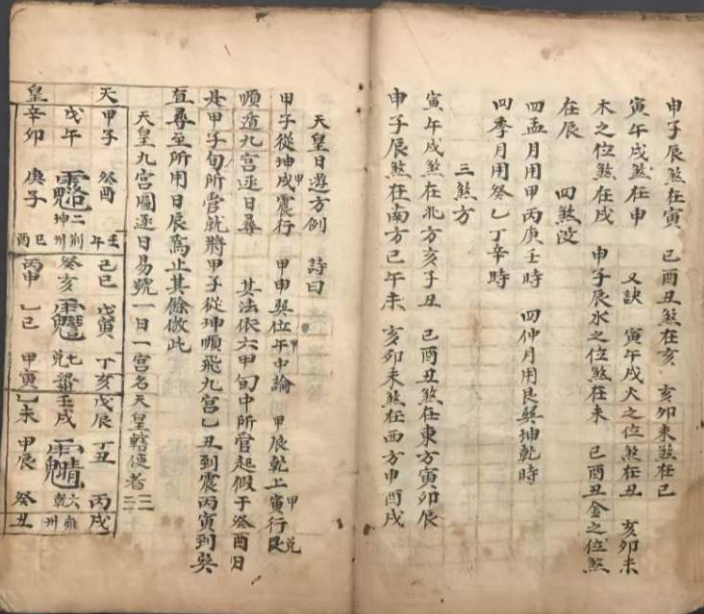 申子辰煞在寅　巳酉丑煞在亥　亥卯未煞在巳
寅午戌煞在申　又訣　寅午戌火之位煞在丑　亥卯未
木之位煞在戌　申子辰水之位煞在未　巳酉丑金之位煞
在辰　四煞沒
四孟月用甲丙庚壬時　四仲月用艮巽坤乾時
四季月用癸乙丁辛時
三煞方
寅午戌煞在北方亥子丑　巳酉丑煞在東方寅卯辰
申子辰煞在南方巳午未　亥卯未煞在西方申酉戌
天皇日遊方例　詩曰
甲子從坤戌震行　甲申巽位午中論　甲辰乾上寅行兌
順造九宮逐日尋　其法依六甲旬中所管起假于癸酉日
是甲子旬所管就將甲子從坤順飛九宮乙丑到震丙寅到巽
直尋至所用日辰焉止其餘倣此
天皇九宮圖逐日易號一日一宮名天皇轄使者
天　甲子　癸酉　壬午　己巳　戊寅　丁亥　戊辰　丁丑　丙戌
戊午　二坤　荆州　癸亥　七兌　壬戌　六乾　雍州
皇　辛卯　庚子　己酉　丙申　乙巳　甲寅　乙未　甲辰　癸丑